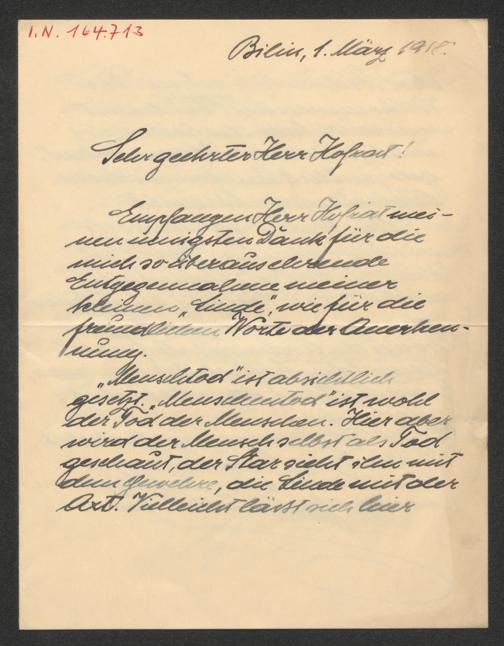 I.N. 164.713
Bilin, 1. März 1918.
Sehr geehrter Herr Hofrat!
Empfangen Herr Hofrat mei-
nen innigsten Dank für die
mich so überaus ehrende
Entgegennahme meiner
kleinen „Linde", wie für die
freundlichen Worte der Anerken-
nung.
„Menschtod" ist absichtlich
gesetzt. „Menschentod" ist wohl
der Tod der Menschen. Hier aber
wird der Mensch selbst als Tod
geschaut, der Star sieht ihn mit
dem Gewehre, die Linde mit der
Axt. Vielleicht lässt sich hier